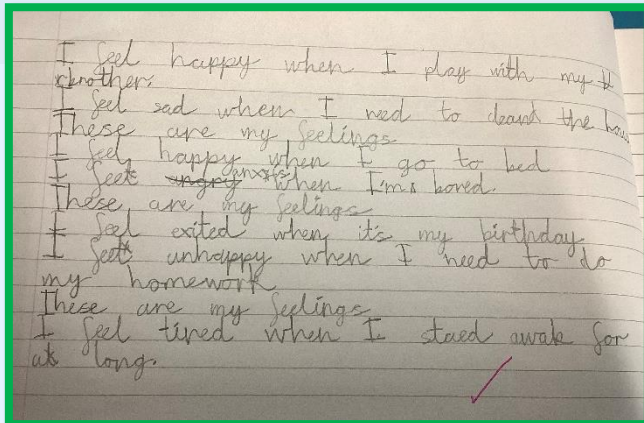 I feel happy when I play with my
brother.
I feel sad when I need to cleand the hous
These are my feelings
I feel happy when I go to bed
I feel angry when I'm bored
These are my feelings
I feel exited when it's my birthday
I feel unhappy when I need to do
my homework
These are my feelings
I feel tired when I staed awake for
long.